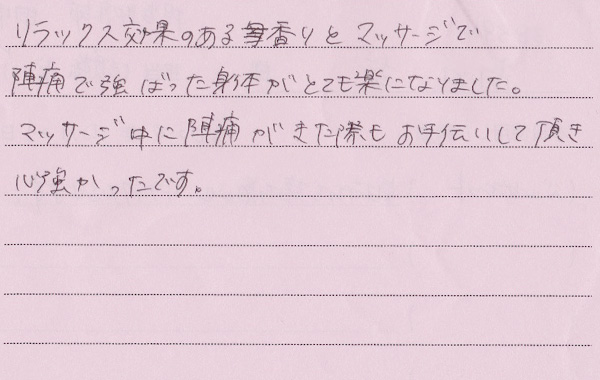 リラックス効果のある香りとマッサージで
陣痛で強ばった身体がとても楽になりました。
マッサージ中に陣痛がきた際もお手伝いして頂き
心強かったです。